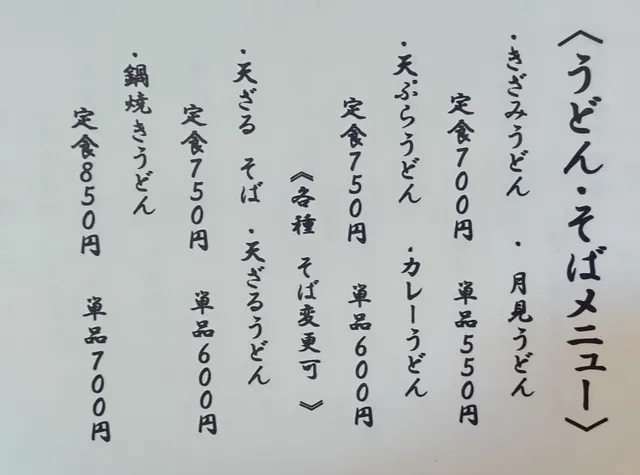 〈うどん・そばメニュー〉
・きざみうどん ・月見うどん
定食700円 単品550円
・天ぷらうどん ・カレーうどん
定食750円 単品600円
《各種 そば変更可 》
・天ざる そば ・天ざるうどん
定食750円 単品600円
・鍋焼きうどん
定食850円 単品700円